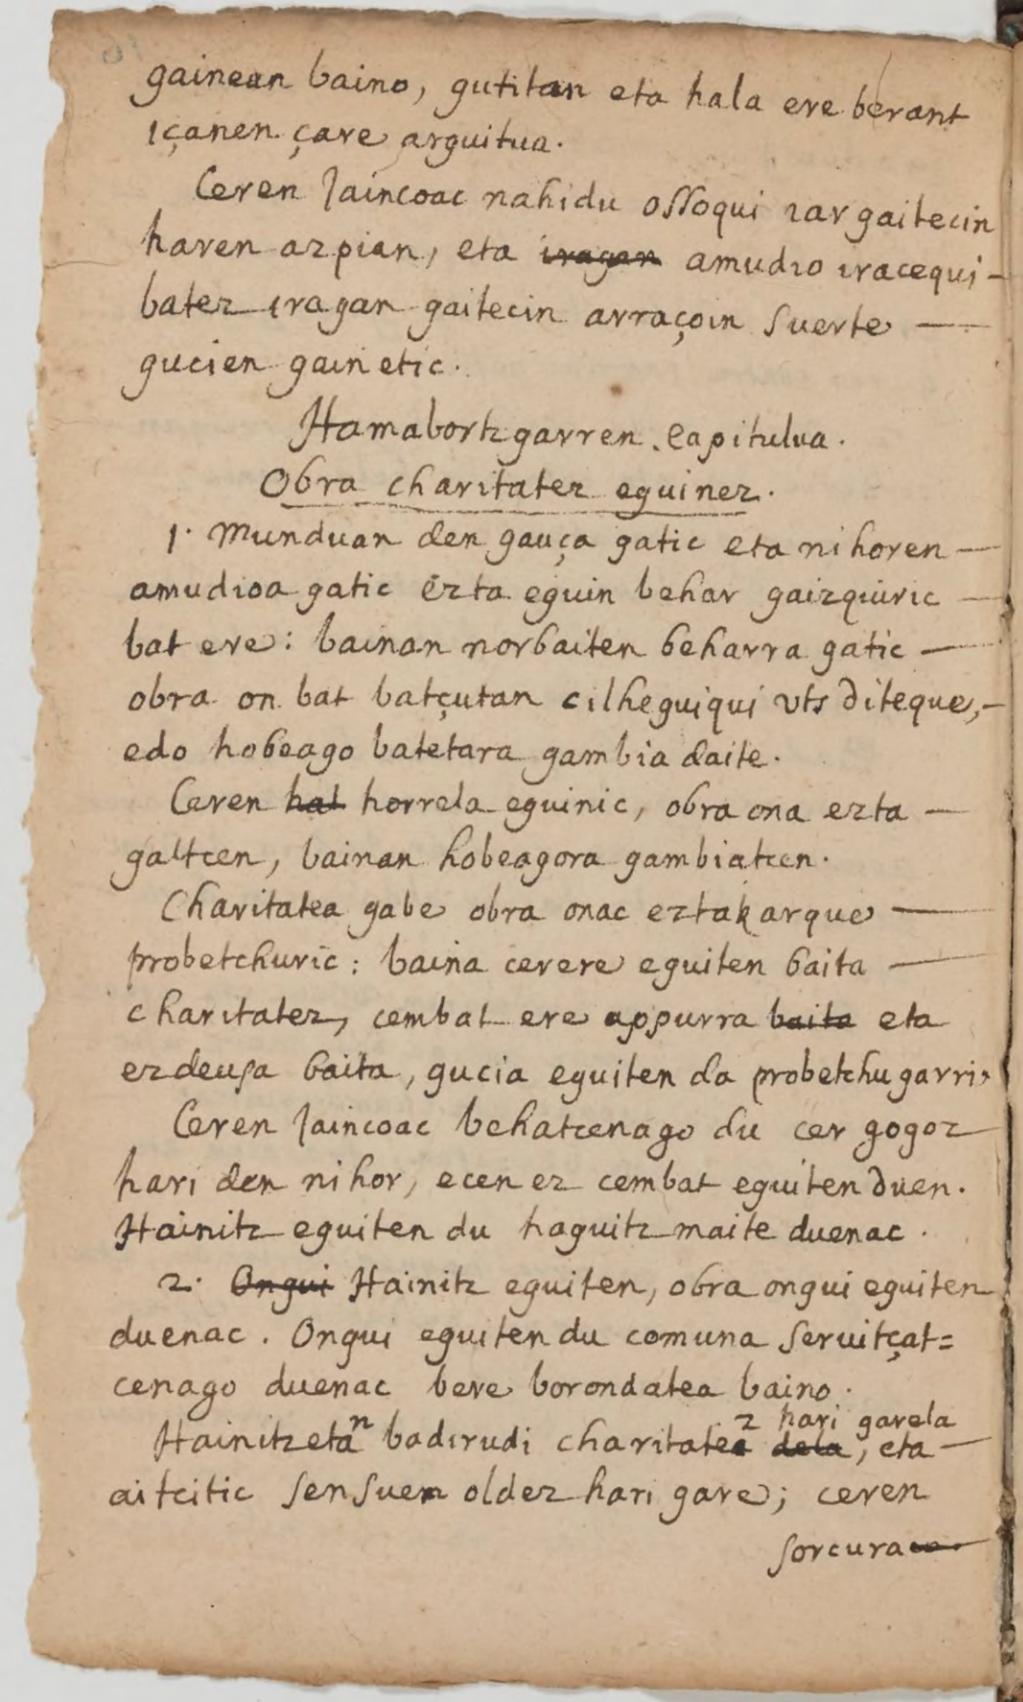 gainean baino, gutitan eta hala ere berant
içanen çare arguitua.
Ceren Jaincoac nahi du ossoqui iar gaitecin
haren azpian, eta iragan amudio iracequi-
batez iragan gaitecin arraçoin suerte —
gucien gainetic.
Hamabortz garren Capitulua.
Obra charitatez eguinez.
1. Munduan den gauça gatic eta nihoren —
amudioa gatic ezta eguin behar gaizquiric —
bat ere: bainan norbaiten beharra gatic —
obra on bat batçutan cilheguiqui vts diteque,-
edo hobeago batetara gambia daite.
Ceren hal horrela eguinic, obra ona ezta —
galtcen, bainan hobeagora gambiatcen.
Charitatea gabe obra onac eztakarque —
probetchuric: baina cerere eguiten baita —
charitatez, cembat ere appurra baita eta
ezdeusa baita, gucia eguiten da probetchugarri.
Ceren Jaincoac behatcenago du cer gogoz
hari den nihor, ecen ez cembat eguiten duen.
Hainitz eguiten du haguitz maite duenac.
2. Ongui Hainitz eguiten, obra ongui eguiten
duenac. Ongui eguiten du comuna seruitçat=
cenago duenac bere borondatea baino.
z hari garela
Hainitzetan badirudi charitatea dela, eta —
aitcitic sensuen oldez hari gare; ceren
sorcura